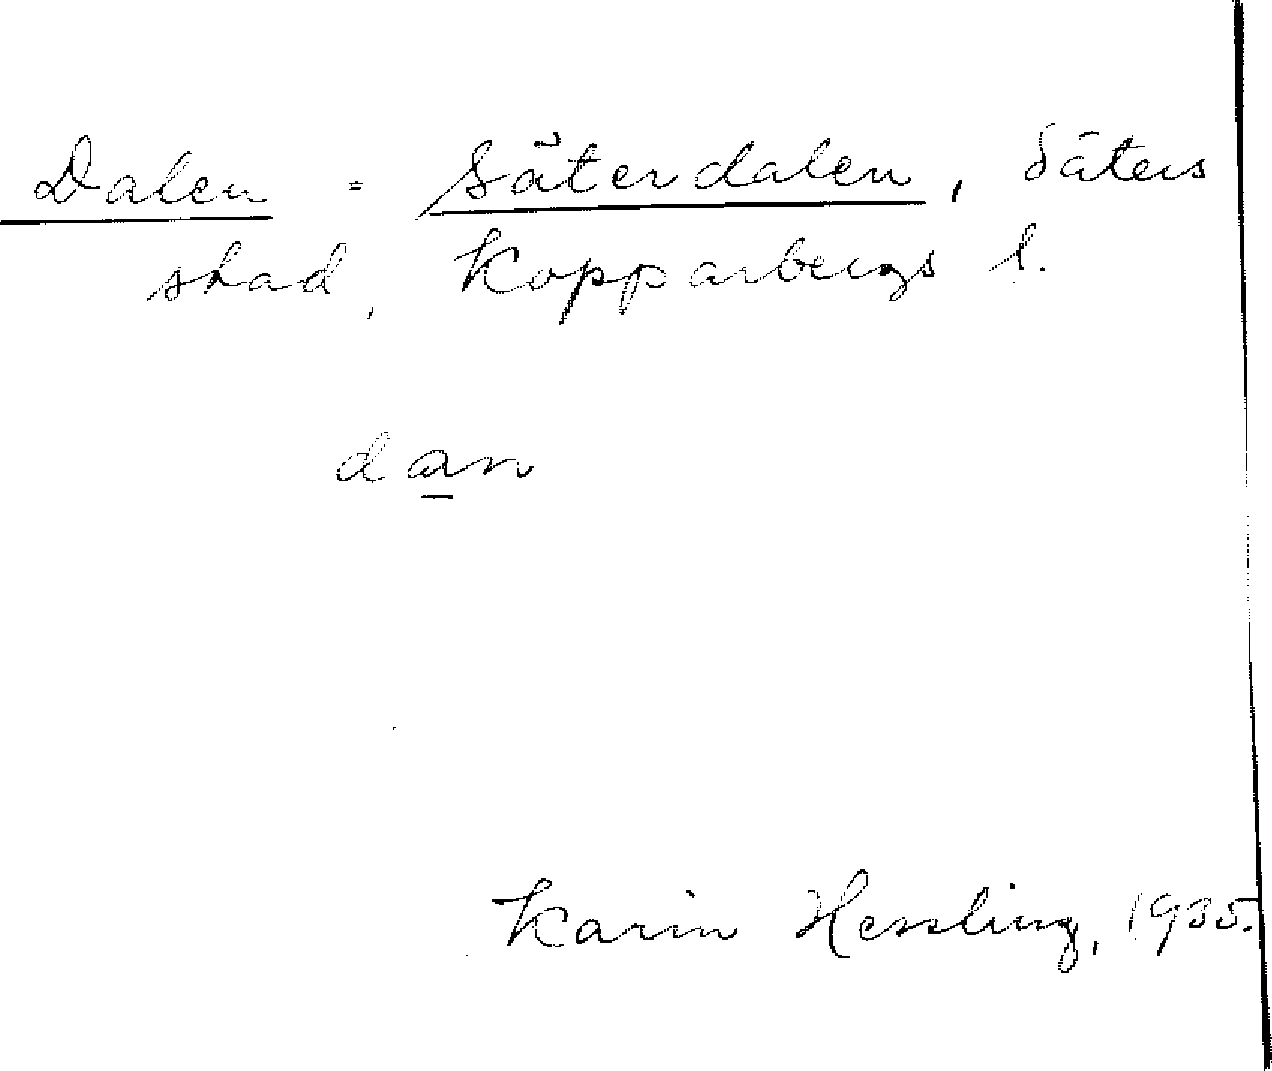 Dalen = Säterdalen, Säters
stad, Kopparbergs l.
dan
Karin Hessling, 1935.